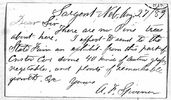 Sargent Neb Aug 27/89
Dear Sir There are no Pens
about here. I expect to send to the
State Fair an exhibit from this part of
Custer Co. some 40 kinds of
vegetables and plenty of
Yours